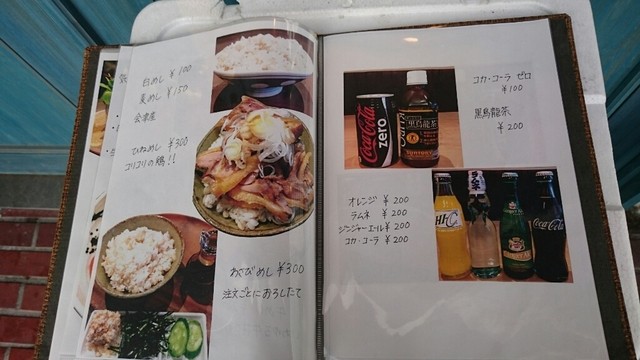 白めし ¥100
麦めし ¥150
会津産
ひねめし ¥300
コリコリの鶏!!
わさびめし ¥300
注文ごとにおろしたて
コカ・コーラ ゼロ
¥100
黒烏龍茶
¥200
オレンジ ¥200
ラムネ ¥200
ジンジャーエール ¥200
コカ・コーラ ¥200
Coca-Cola
zero
黒烏龍茶
SUNTORY
HI-C
Coca-Cola